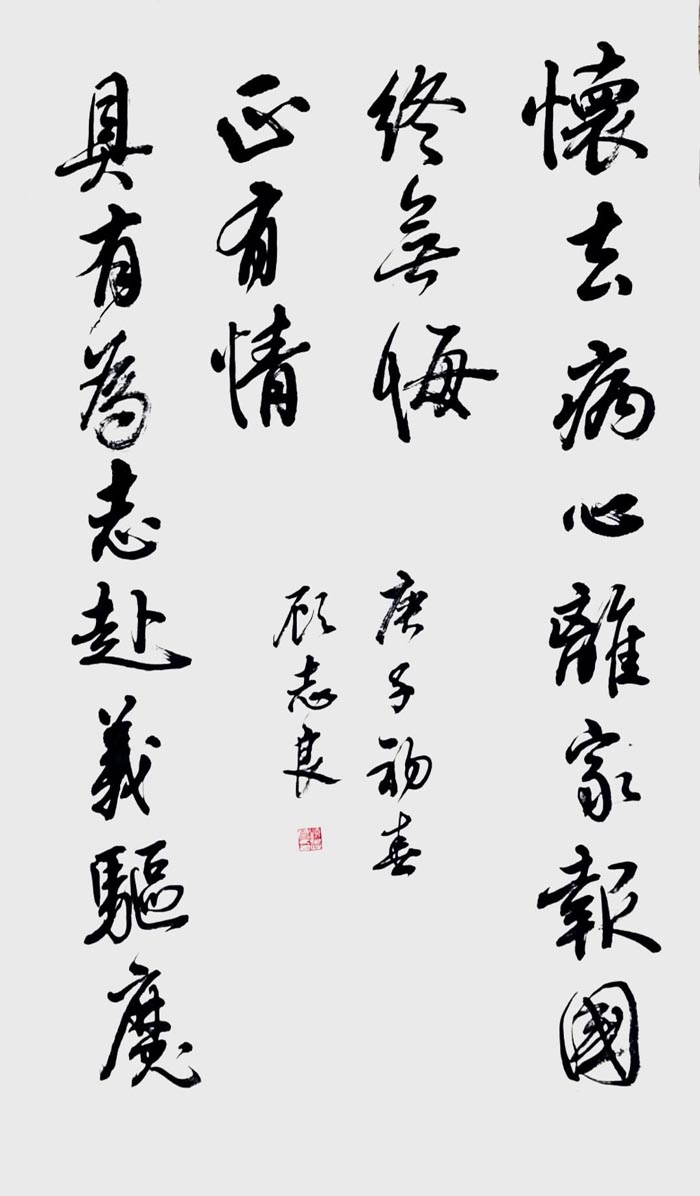 懷去病心離家報國
終無悔
具有為志赴義驅魔
正有情
庚子初春
顾志良